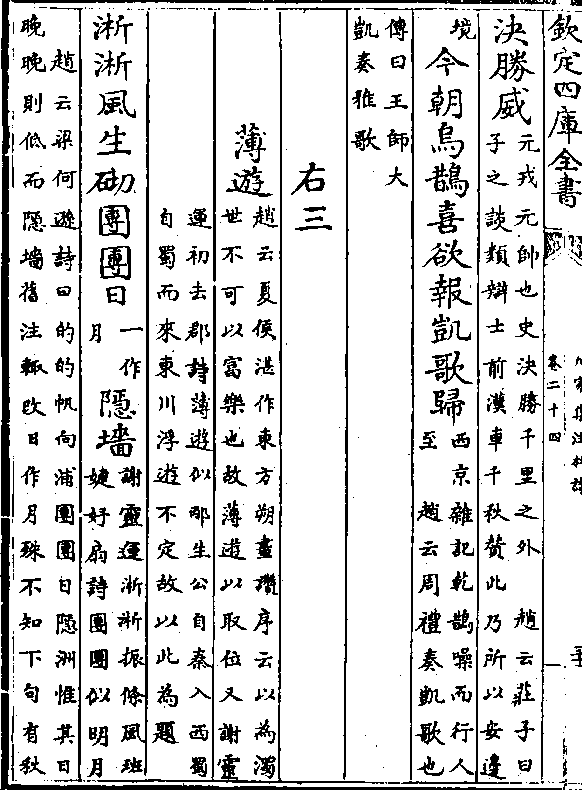 欽定四庫全書
卷二十四
決勝威元戎元帥也史決勝千里之外 趙云莊子曰
子之談類辯士前漢車千秋贊此乃所以安邊
境今朝烏鵲喜欲報凱歌歸西京雜記乾鵲噪而行人
至 趙云周禮奏凱歌也
傳曰王師大
凱奏雅歌
右三
薄遊趙云夏侯湛作東方朔畫瓚序云以為濁
世不可以富樂也故薄遊以取位又謝靈
運初去郡詩薄遊似邴生公自秦入西蜀
自蜀而來東川浮遊不定故以此為題
淅淅風生砌團團日一作
月隠墻謝靈運淅淅振條風班
婕妤扇詩團團似明月
趙云梁何遜詩曰的的帆向浦團團日隠洲惟其日
晚晚則低而隠墻舊注輒改日作月殊不知下句有秋